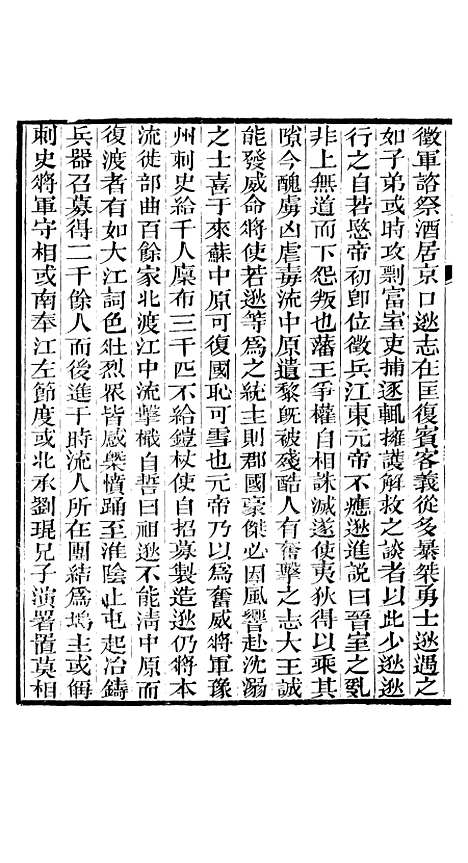 徵軍諮祭酒居京口逖志在匡復賓客義從多暴桀勇士逖遇之
如子弟或時攻剽富室吏捕逐輒擁護解救之談者以此少逖逖
行之自若愍帝初卽位徵兵江東元帝不應逖進說曰晉室之亂
非上無道而下怨叛也藩王爭權自相誅滅遂使夷狄得以乘其
隙今醜虜凶虐毒流中原遺黎旣被殘酷人有奮擊之志大王誠
能發威命將使若逖等爲之統主則郡國豪傑必因風響赴沈溺
之士喜于來蘇中原可復國恥可雪也元帝乃以爲奮威將軍豫
州刺史給千人廩布三千匹不給鎧杖使自招募製造逖仍將本
流徙部曲百餘家北渡江中流擊檝自誓曰祖逖不能淸中原而
復渡者有如大江詞色壯烈眾皆感槩憤踊至淮陰止屯起冶鑄
兵器召募得二千餘人而後進于時流人所在團結爲塢主或侮
刺史將軍守相或南奉江左節度或北承劉琨兄子演署置莫相